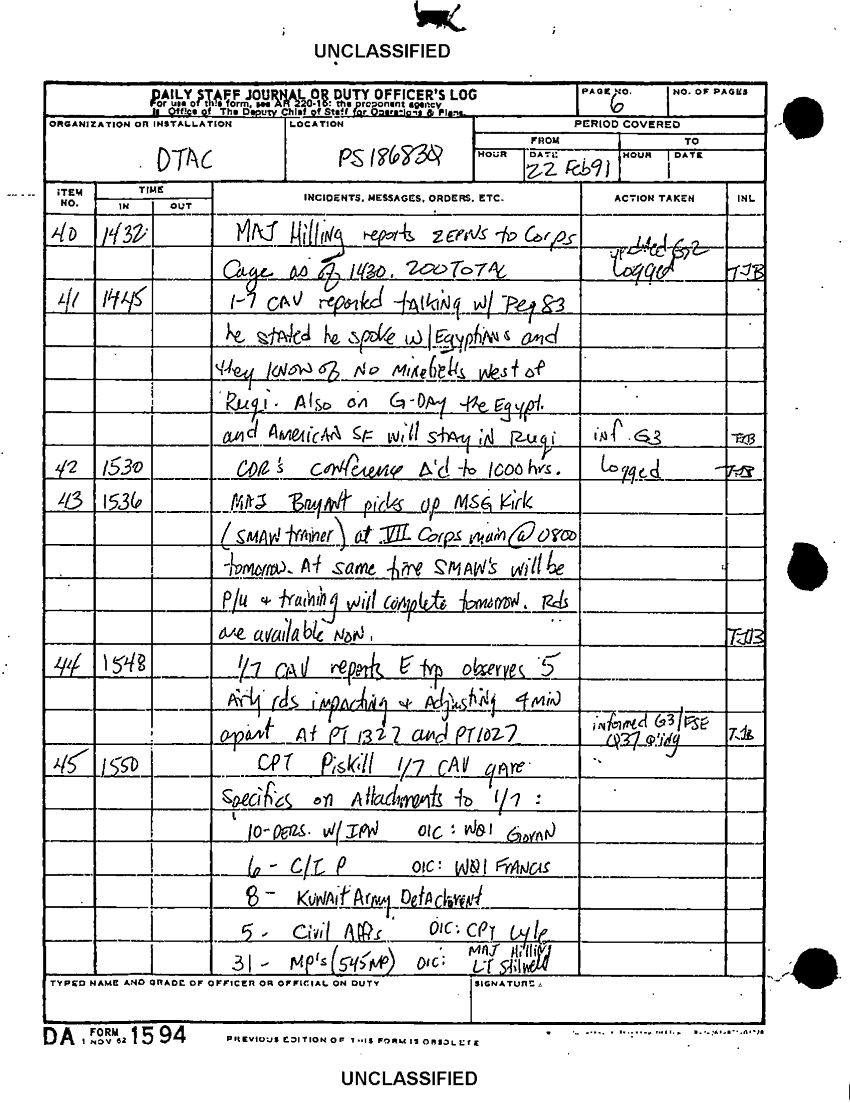 UNCLASSIFIED
DAILY STAFF JOURNAL OR DUTY OFFICER'S LOG
For use of this form, see AR 220-15; the proponent agency
is Office of The Deputy Chief of Staff for Operations & Plans.
PAGE NO.
6
NO. OF PAGES
ORGANIZATION OR INSTALLATION
DTAC
LOCATION
PS186830
PERIOD COVERED
FROM
TO
HOUR
DATE
22 Feb91
HOUR
DATE
ITEM NO.
TIME
IN
OUT
INCIDENTS, MESSAGES, ORDERS, ETC.
ACTION TAKEN
INL
40 1432 MAJ Hilling reports ZEPWs to Corps updated G2
Cage as of 1430. 200 TOTAL logged TJB
41 1445 1-7 CAV reported talking w/ Peg 83
he stated he spoke w/ Egyptians and
they know of No Minefields west of
Ruqi. Also on G-DAY the Egypt.
and American SF will stay in Ruqi inf G3 TJB
42 1530 CDR's conference Δ'd to 1000 hrs. logged TJB
43 1536 MAJ Bryant picks up MSG Kirk
(SMAW trainer) at VII Corps main @ 0800
tomorrow. At same time SMAW's will be
P/u + training will complete tomorrow. Rds
are available Now. TJB
44 1548 1/7 CAV reports E trp observes 5
Arty rds impacting + Adjusting 4 min
apart At PT 1327 and PT1027 informed G3/FSE TJB
Q37
45 1550 CPT Piskill 1/7 CAV gave
Specifics on Attachments to 1/7 :
10-PERS. W/ IPW OIC: WO1 Govan
6 - C/I P OIC: WO1 FRANCIS
8 - Kuwait Army Detachment
5 - Civil Affs OIC: CPT Lyle
31 - MP's (545MP) OIC: MAJ Hilling
LT Stilweld
TYPED NAME AND GRADE OF OFFICER OR OFFICIAL ON DUTY
SIGNATURE
DA FORM 1594
1 NOV 62
PREVIOUS EDITION OF THIS FORM IS OBSOLETE
UNCLASSIFIED